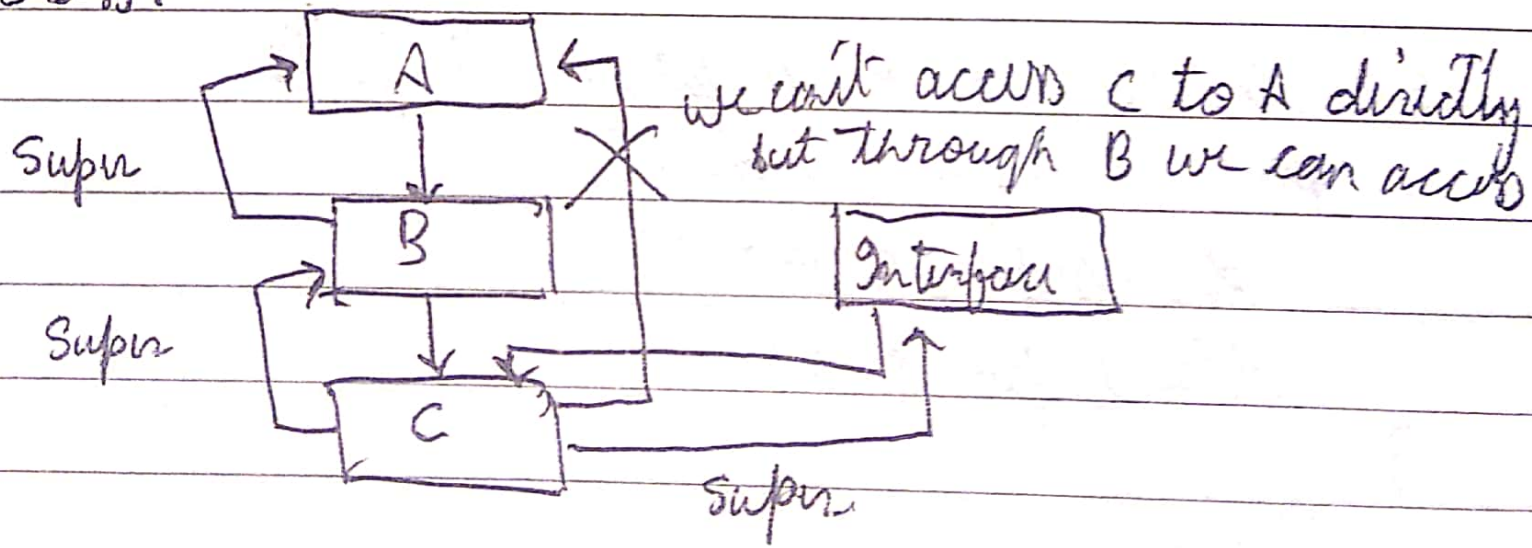 A
we can't access C to A directly
but through B we can access
Super
B
Interface
Super
C
Super